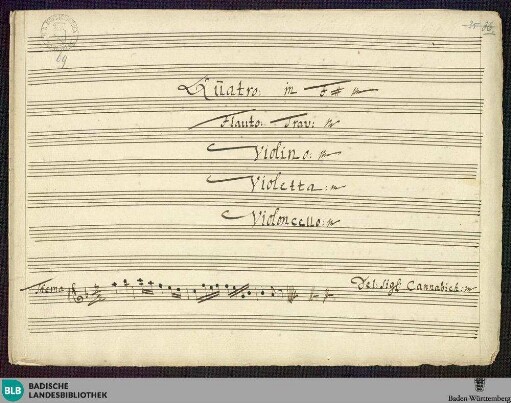 Quatro: in F#
Flauto: Trav:
Violino:
Violetta:
Violoncello:
Thema
Del: Sigl: Cannabich:
BLB
BADISCHE
LANDESBIBLIOTHEK
Baden-Württemberg